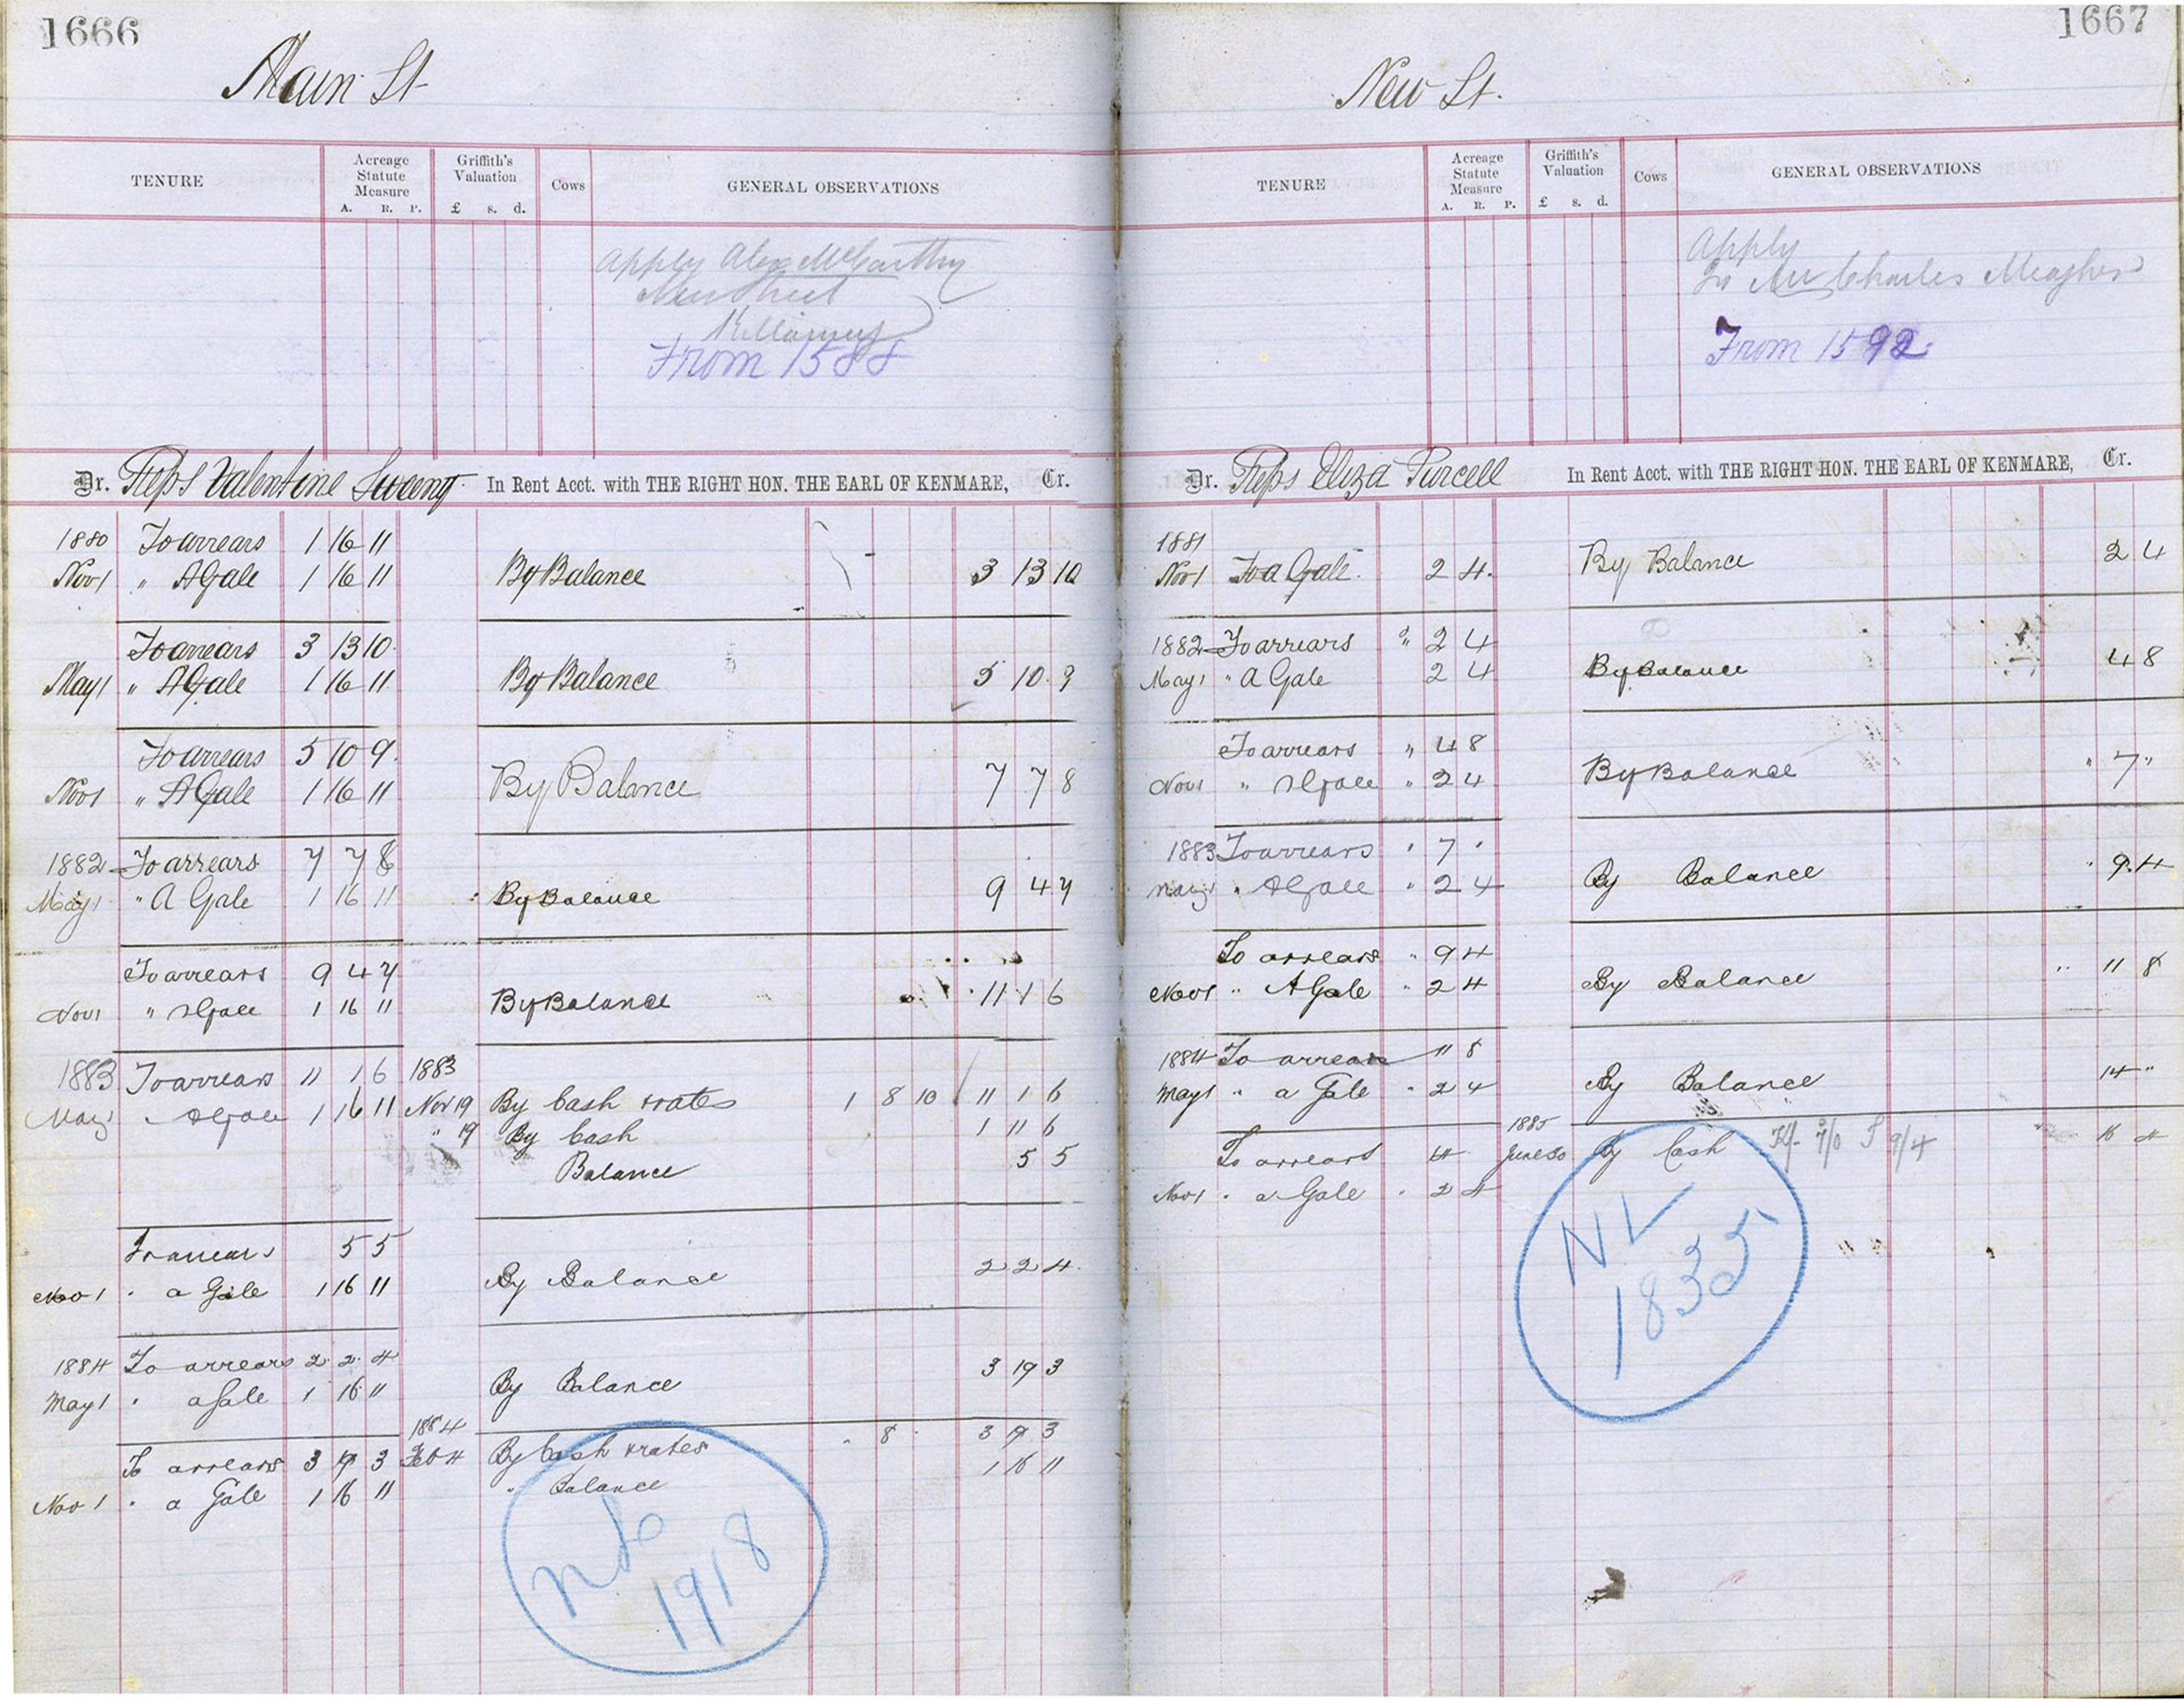 1666
Main St
TENURE Acreage Statute Measure A. R. P. Griffith's Valuation £ s. d. Cows GENERAL OBSERVATIONS
Apply Alex McCarthy
New Street
Killarney
From 1588
Dr. Reps Valentine Sweeny In Rent Acct. with THE RIGHT HON. THE EARL OF KENMARE, Cr.
1880 To arrears 1 16 11
Nov 1 " A Gale 1 16 11 By Balance 3 13 10
To arrears 3 13 10
May 1 " A Gale 1 16 11 By Balance 5 10 9
To arrears 5 10 9
Nov 1 " A Gale 1 16 11 By Balance 7 7 8
1882 To arrears 7 7 8
May 1 " A Gale 1 16 11 By Balance 9 4 7
To arrears 9 4 7
Nov 1 " A Gale 1 16 11 By Balance 11 1 6
1883 To arrears 11 1 6 1883
May 1 " A Gale 1 16 11 Nov 19 By Cash & rates 1 8 10 11 1 6
" 19 By Cash 1 11 6
Balance 5 5
To arrears 5 5
Nov 1 " a Gale 1 16 11 By Balance 2 2 4
1884 To arrears 2 2 4
May 1 " a Gale 1 16 11 By Balance 3 19 3
1884
To arrears 3 19 3 Feb 4 By Cash & rates " 8 " 3 19 3
Nov 1 " a Gale 1 16 11 " Balance 1 16 11
1918
1667
New St.
TENURE Acreage Statute Measure A. R. P. Griffith's Valuation £ s. d. Cows GENERAL OBSERVATIONS
Apply
To Mr Charles Meagher
From 1592
Dr. Reps Eliza Purcell In Rent Acct. with THE RIGHT HON. THE EARL OF KENMARE, Cr.
1881
Nov 1 To a Gale 2 4 By Balance 2 4
1882 To arrears " 2 4
May 1 " A Gale 2 4 By Balance 4 8
To arrears " 4 8
Nov 1 " A Gale " 2 4 By Balance " 7 "
1883 To arrears " 7 "
May 1 " A Gale " 2 4 By Balance " 9 4
To arrears " 9 4
Nov 1 " A Gale " 2 4 By Balance " 11 8
1884 To arrears 11 8
May 1 " a Gale " 2 4 By Balance 14 "
1885
To arrears 14 June 30 By Cash 7/0 9/4 16 4
Nov 1 " a Gale " 2 4
NL
1835